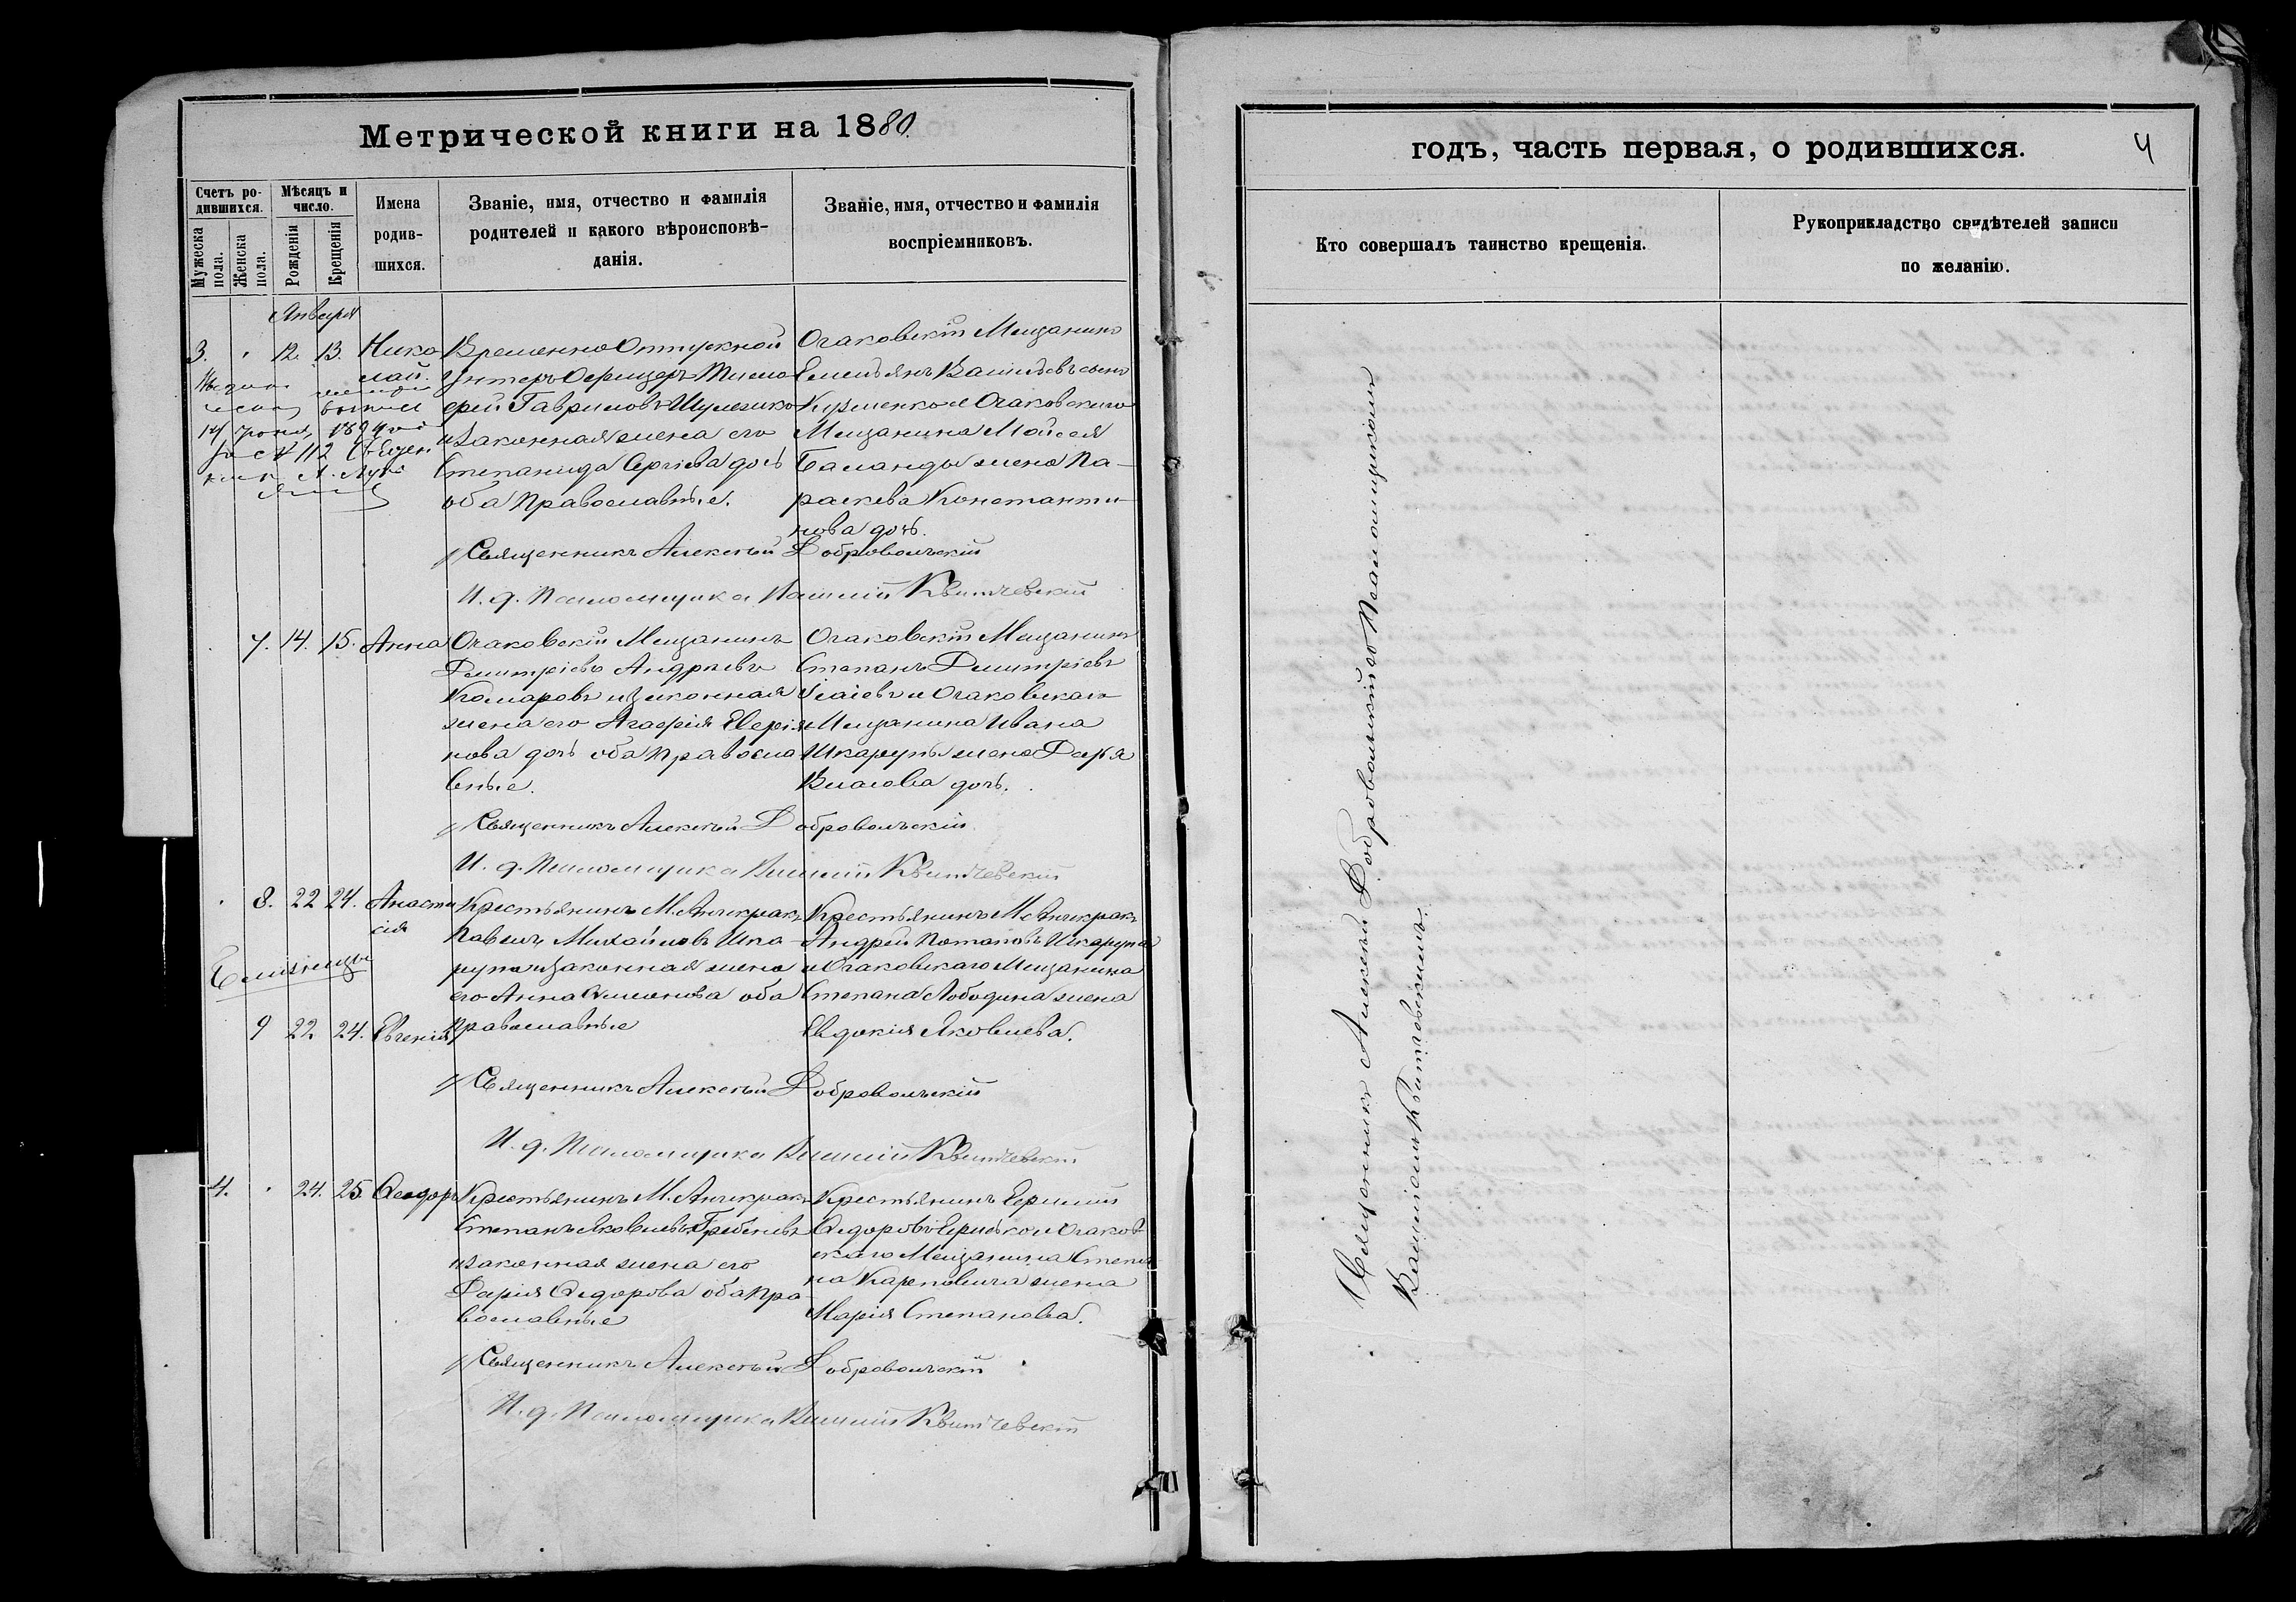 Метрической книги на 1880.
Счетъ ро-
дившихся.
Мѣсяцъ и
число.
Мужеска
пола.
Женска
пола.
Рожденія
Крещенія
Имена
родив-
шихся.
Званіе, имя, отчество и фамилія
родителей и какого вѣроисповѣ-
данія.
Званіе, имя, отчество и фамилія
воспріемниковъ.
Января
3. 12. 13. Нико
лай.
Временно Отпускной
Унтеръ Офицеръ Тимо
фей Гавриловъ
и законная жена его
Степанида Сергіева дочь
оба Православные.
Очаковскій Мещанинъ
Емельянъ сынъ
Кузменко и Очаковскаго
Мещанина Моисея
Баланды жена Па-
раскева Константи-
нова дочь.
Священникъ Алексѣй Добровольскій
И. д. Псаломщика Квитчевскій
7. 14. 15. Анна
Очаковскій Мещанинъ
Димитріевъ Андреевъ
Комаровъ и законная
жена его Агафія
нова дочь оба Правосла
вные.
Очаковскій Мещанинъ
Степанъ Димитріевъ
и Очаковскаго
Мещанина Ивана
Шкарупы жена Дарья
Власова дочь.
Священникъ Алексѣй Добровольскій
И. д. Псаломщика Квитчевскій
8. 22 24. Анаста
сія
Близнецы
9 22 24. Евгенія
Крестьянинъ М. Анчекракъ
Павелъ Михайловъ Шка-
рупа и законная жена
его Анна Симонова оба
православные
Крестьянинъ М. Анчекракъ
Андрей Потаповъ Шкарупа
и Очаковскаго Мещанина
Степана Лободина жена
Евдокія Яковлева.
Священникъ Алексѣй Добровольскій
И. д. Псаломщика Квитчевскій
4. 24. 25. Ѳеодоръ
Крестьянинъ М. Анчекракъ
Степанъ Яковлевъ
и законная жена его
Дарія Ѳедорова оба пра
вославные
Крестьянинъ
Ѳедоровъ и Очаков
скаго Мещанина Степа
на Карповича жена
Марія Степанова.
Священникъ Алексѣй Добровольскій
И. д. Псаломщика Квитчевскій
годъ, часть первая, о родившихся.
4
Кто совершалъ таинство крещенія.
Рукоприкладство свидѣтелей записи
по желанію.
Священникъ Алексѣй Добровольскій съ Псаломщикомъ
Квитчевскимъ.